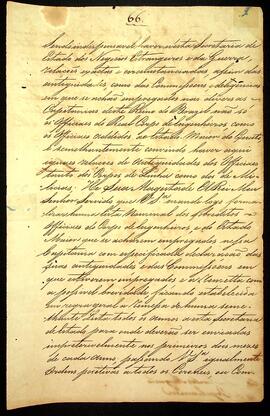 66.
Sendo indispensavel haver n'esta Secretaria de
Estado dos Negocios Estrangeiros e da Guerra
relações exactas e circunstanciadas assim das
antiguidades, como das Commissoens e deligencias
em que se achão empregados nas diversas
Capitanias deste Reino do Brazil não só
os Officiaes do Real Corpo de Engenheiros como
os Officiaes addidos ao Estado Maior do Exercito
e semelhantemente convindo haver aqui
iguaes relaçoens de Antiguidades dos Officiaes
tanto dos Corpos de Linha como dos de Me
licias: He Sua Magestade El Rei Meu
Senhor Servido que V. Sª mande logo formar
huma lista Nominal dos sobreditos
Officiaes do Corpo de Engenheiros, e do Estado
Maior que se acharem empregados nessa
Capitania com especificada declaração das
suas antiguidades e das Commissoens em
que estiverem empregados e a remetta com
a possivel brevidade ficando estabelecida
em regra geral a remessa de huma seme
lhante Lista todos os annos a esta Secretaria
de Estado para onde deverão ser enviadas
impreterivelmente nos primeiros dois mezes
de cada anno passando V. Sª igualmente
ordens positivas a todos os Coroneis ou Com